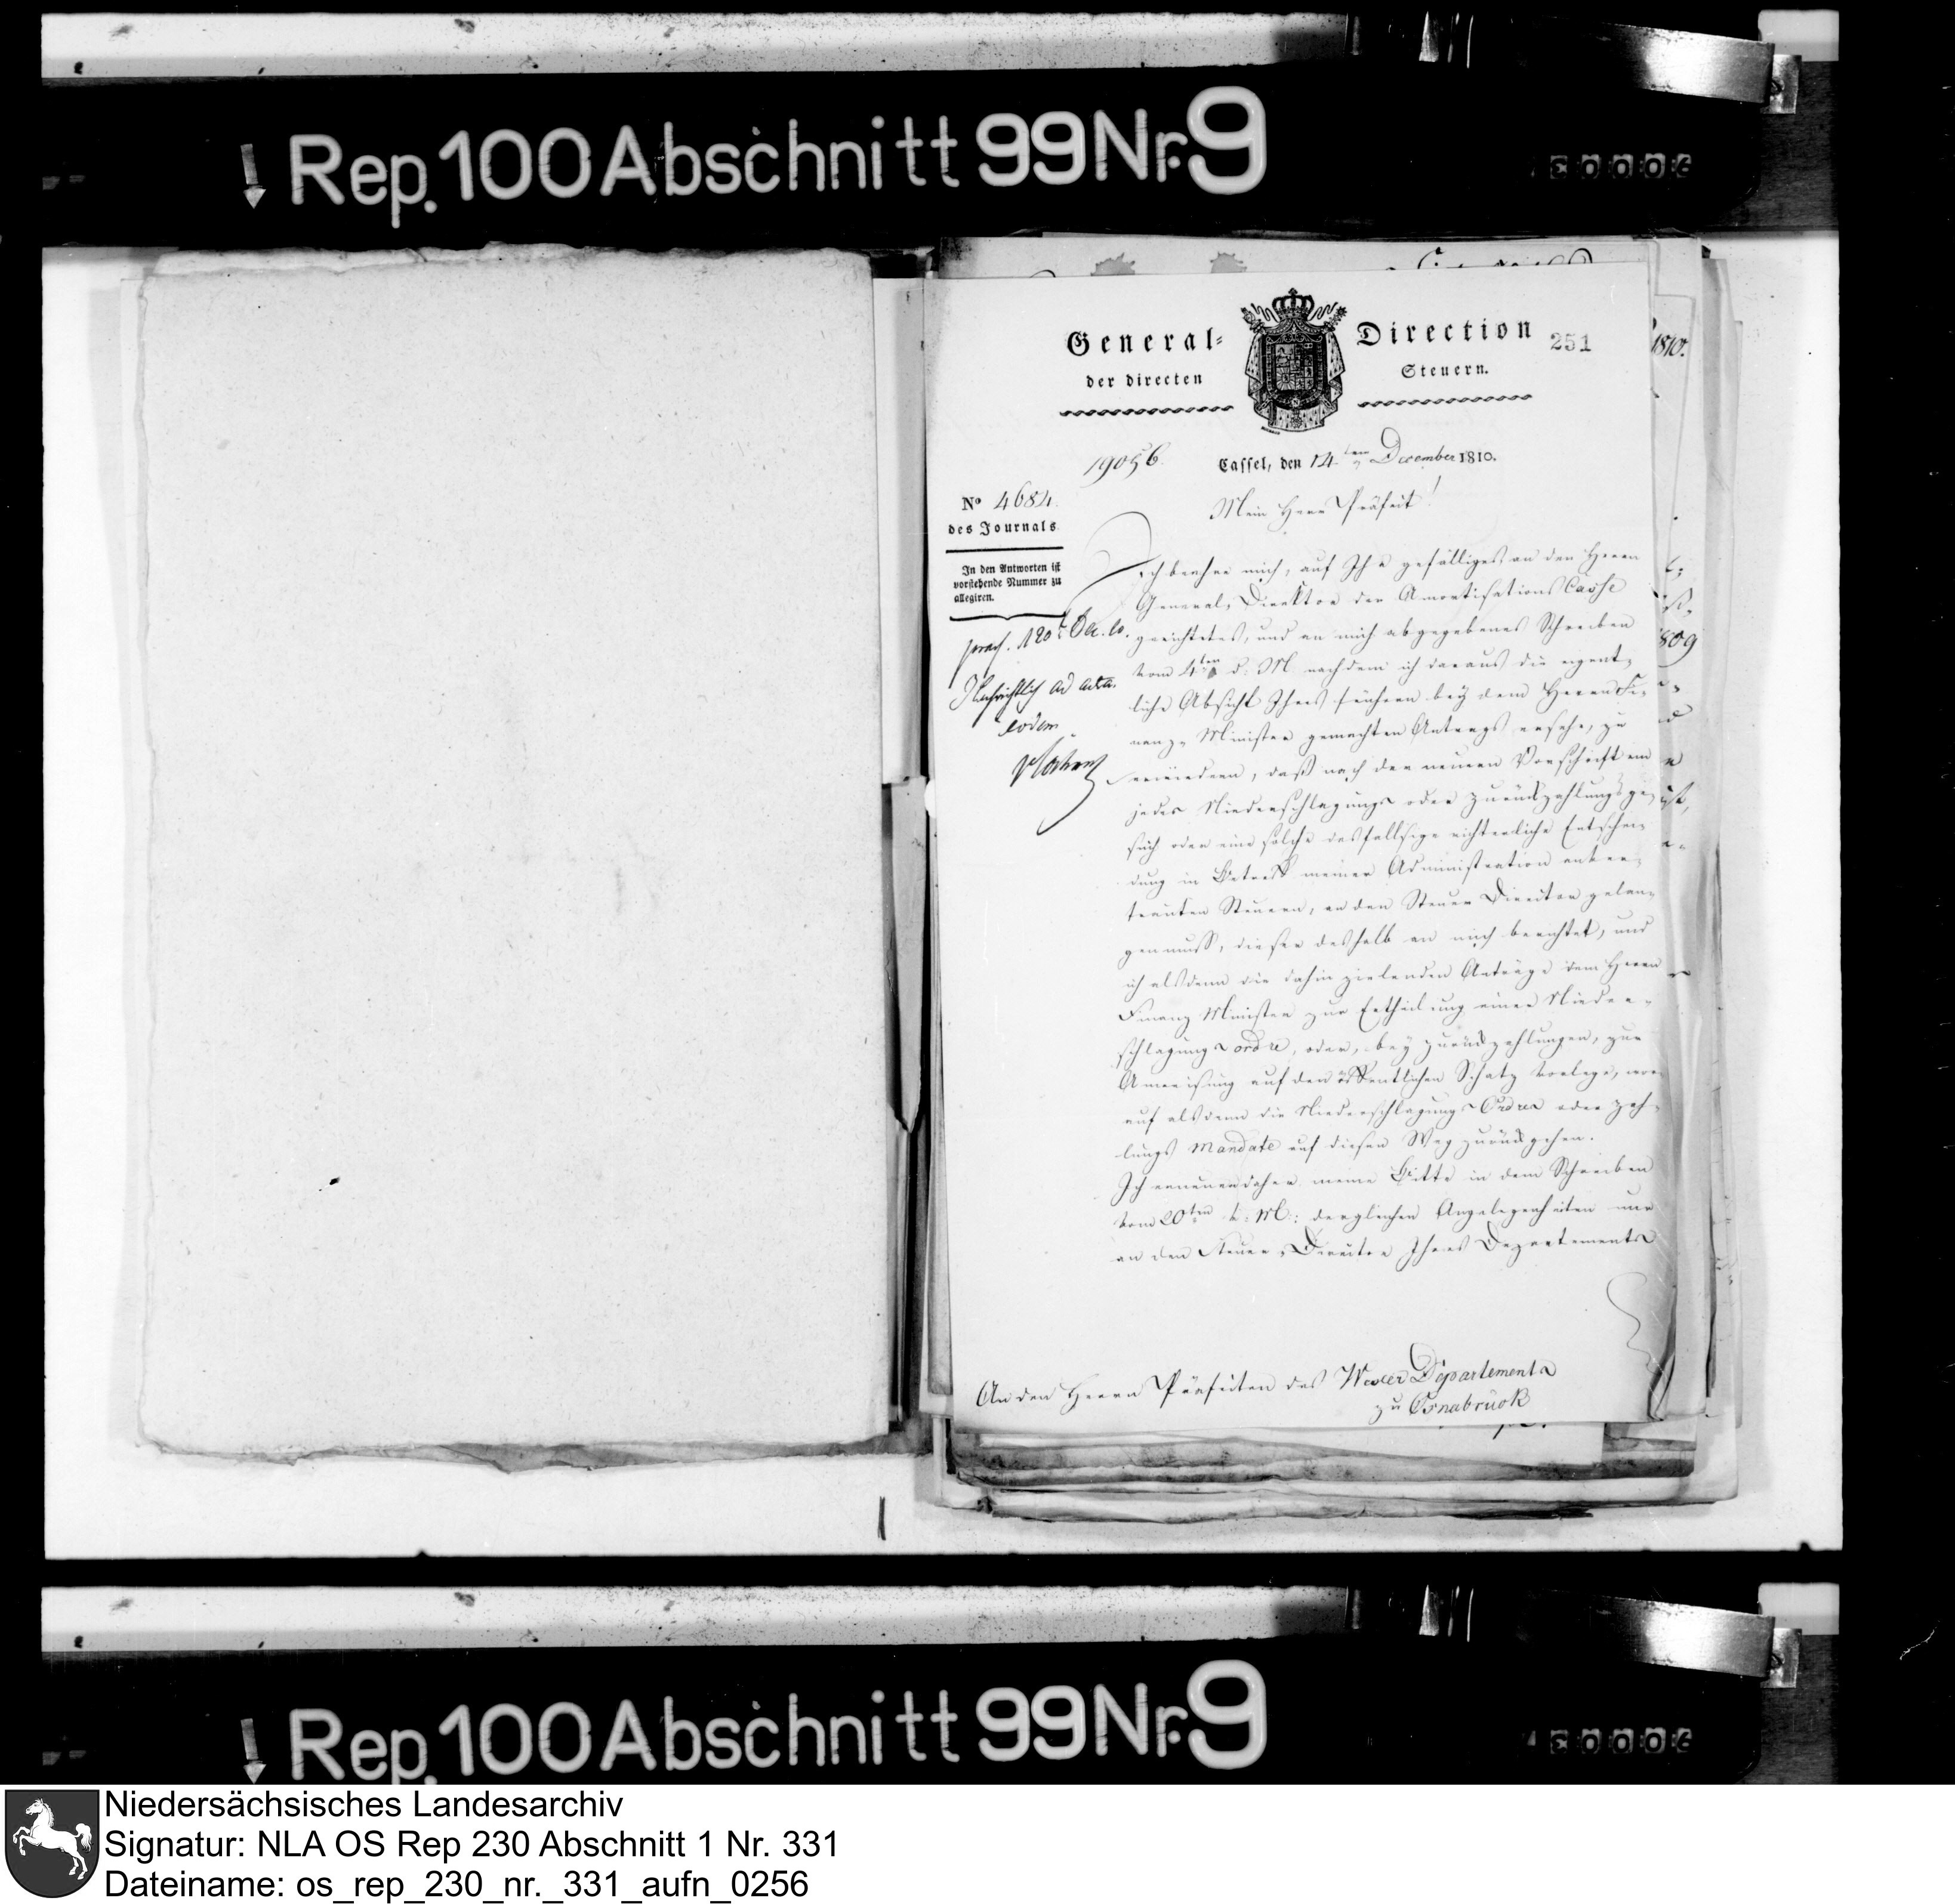 Rep. 100 Abschnitt 99 Nr. 9
General- Direction
251
der directen Steuern.
1810.
19056.
Cassel, den 14ten December 1810.
No 4684.
des Journals
In den Antworten ist
vorstehende Nummer zu
allegiren.
Mein Herr Präfect!
Ich beehre mich, auf Ihr gefälliges an den Herrn
General-Direktor der Amortisations Casse
gerichtetes, und an mich abgegebenes Schreiben
vom 4ten d. M. nachdem ich daraus die eigent-
liche Absicht Ihres frühern bey dem Herrn Fi-
nanz-Minister gemachten Antrags ersehe, zu
erwiedern, daß nach den neuern Vorschriften ein
jedes Niederschlagungs oder Zurückzahlungsge-
such oder eine solche desfallsige richterliche Entschei-
dung in Betreff meiner Administration anver-
trauten Steuern, an den Steuer Director gelan-
gen muß, dieser deshalb an mich berichtet, und
ich alsdenn die dahin zielenden Anträge dem Herrn
Finanz Minister zur Ertheilung einer Nieder-
schlagungs ordre, oder, bey Zurückzahlungen, zur
Anweisung auf den öffentlichen Schatz vorlege, wor-
auf alsdenn die Niederschlagungs Ordres oder Zah-
lungs Mandate auf diesen Weg zurückgehen.
Ich erneuere daher meine Bitte in dem Schreiben
vom 20ten v. M.: dergleichen Angelegenheiten nur
an den Steuer-Director Ihres Departements
Dec. 10.
ad acta.
eodem
An den Herrn Präfecten des Weser Departements
zu Osnabrück
809
Rep. 100 Abschnitt 99 Nr. 9
Niedersächsisches Landesarchiv
Signatur: NLA OS Rep 230 Abschnitt 1 Nr. 331
Dateiname: os_rep_230_nr._331_aufn_0256